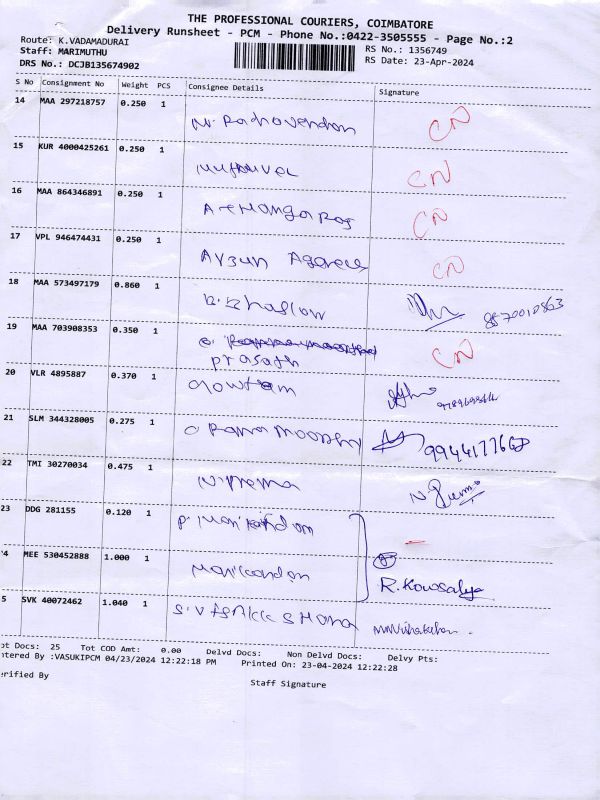 THE PROFESSIONAL COURIERS, COIMBATORE
Delivery Runsheet - PCM - Phone No.:0422-3505555 - Page No.:2
Route: K.VADAMADURAI
RS No.: 1356749
Staff: MARIMUTHU
RS Date: 23-Apr-2024
DRS No.: DCJB135674902
S No Consignment No Weight PCS Consignee Details Signature
14 MAA 297218757 0.250 1
CN
15 KUR 4000425261 0.250 1
CN
16 MAA 864346891 0.250 1
CN
17 VPL 946474431 0.250 1
CN
18 MAA 573497179 0.860 1
8870010863
19 MAA 703908353 0.350 1
prasath CN
20 VLR 4895887 0.370 1
Gowtham
21 SLM 344328005 0.275 1
22 TMI 30270034 0.475 1
N. Prema
23 DDG 281155 0.120 1
P. Manikandan
4 MEE 530452888 1.000 1
Manikandan R. Kowsalya
5 SVK 40072462 1.040 1
ot Docs: 25 Tot COD Amt: 0.00 Delvd Docs: Non Delvd Docs: Delvy Pts:
ntered By :VASUKIPCM 04/23/2024 12:22:18 PM Printed On: 23-04-2024 12:22:28
erified By
Staff Signature